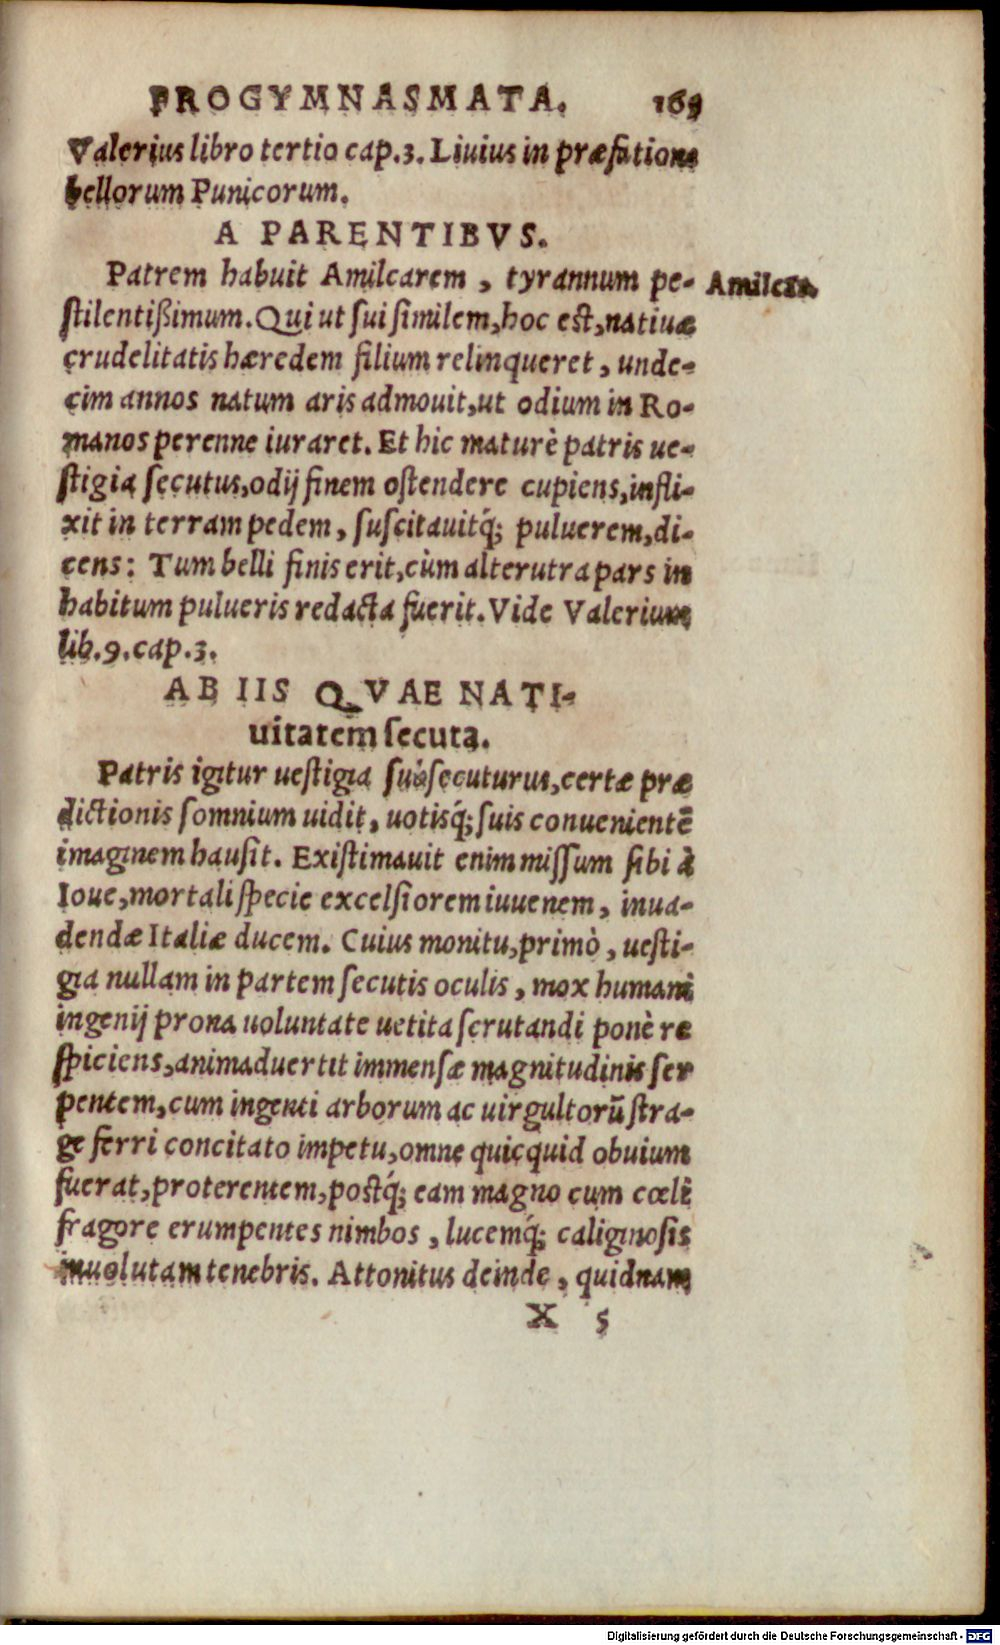 PROGYMNASMATA. 169
Valerius libro tertio cap.3. Liuius in præfatione
bellorum Punicorum.
A PARENTIBVS.
Patrem habuit Amilcarem, tyrannum pe- Amilcar.
ſtilentißimum. Qui ut ſui ſimilem, hoc eſt, natiuæ
crudelitatis hæredem filium relinqueret, unde-
cim annos natum aris admouit, ut odium in Ro-
manos perenne iuraret. Et hic maturè patris ue-
ſtigia ſecutus, odij finem oſtendere cupiens, infli-
xit in terram pedem, ſuſcitauitq́; puluerem, di-
cens: Tum belli finis erit, cùm alterutra pars in
habitum pulueris redacta fuerit. Vide Valerium
lib.9.cap.3.
AB IIS QVAE NATI-
uitatem ſecuta.
Patris igitur ueſtigia ſubſecuturus, certæ præ
dictionis ſomnium uidit, uotisq́; ſuis conuenientē
imaginem hauſit. Exiſtimauit enim miſſum ſibi à
Ioue, mortali ſpecie excelſiorem iuuenem, inua-
dendæ Italiæ ducem. Cuius monitu, primò, ueſti-
gia nullam in partem ſecutis oculis, mox humani
ingenij prona uoluntate uetita ſcrutandi ponè re
ſpiciens, animaduertit immenſæ magnitudinis ſer
pentem, cum ingenti arborum ac uirgultorū ſtra-
ge ferri concitato impetu, omne quicquid obuium
fuerat, proterentem, poſtq́; eam magno cum cœli
fragore erumpentes nimbos, lucemq́; caliginoſis
inuolutam tenebris. Attonitus deinde, quidnam
X 5
Digitalisierung gefördert durch die Deutsche Forschungsgemeinschaft - DFG